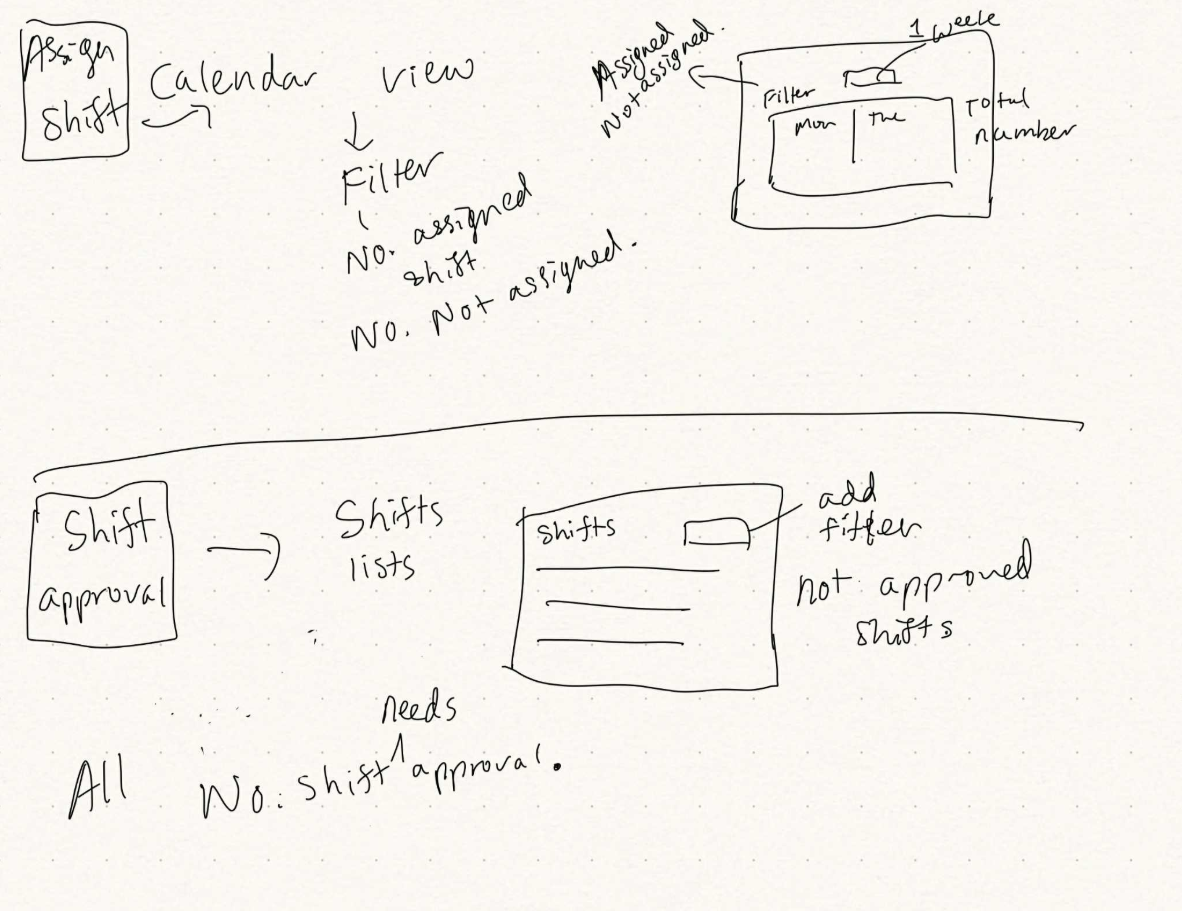 Assign
Shift
Calendar view
Filter
No. assigned
shift
No. Not assigned.
Assigned
Not assigned.
1 week
Filter
Mon
The
Total
number
Shift
approval
Shifts
lists
Shifts
add
filter
not approved
shifts
needs
All No. Shift approval.